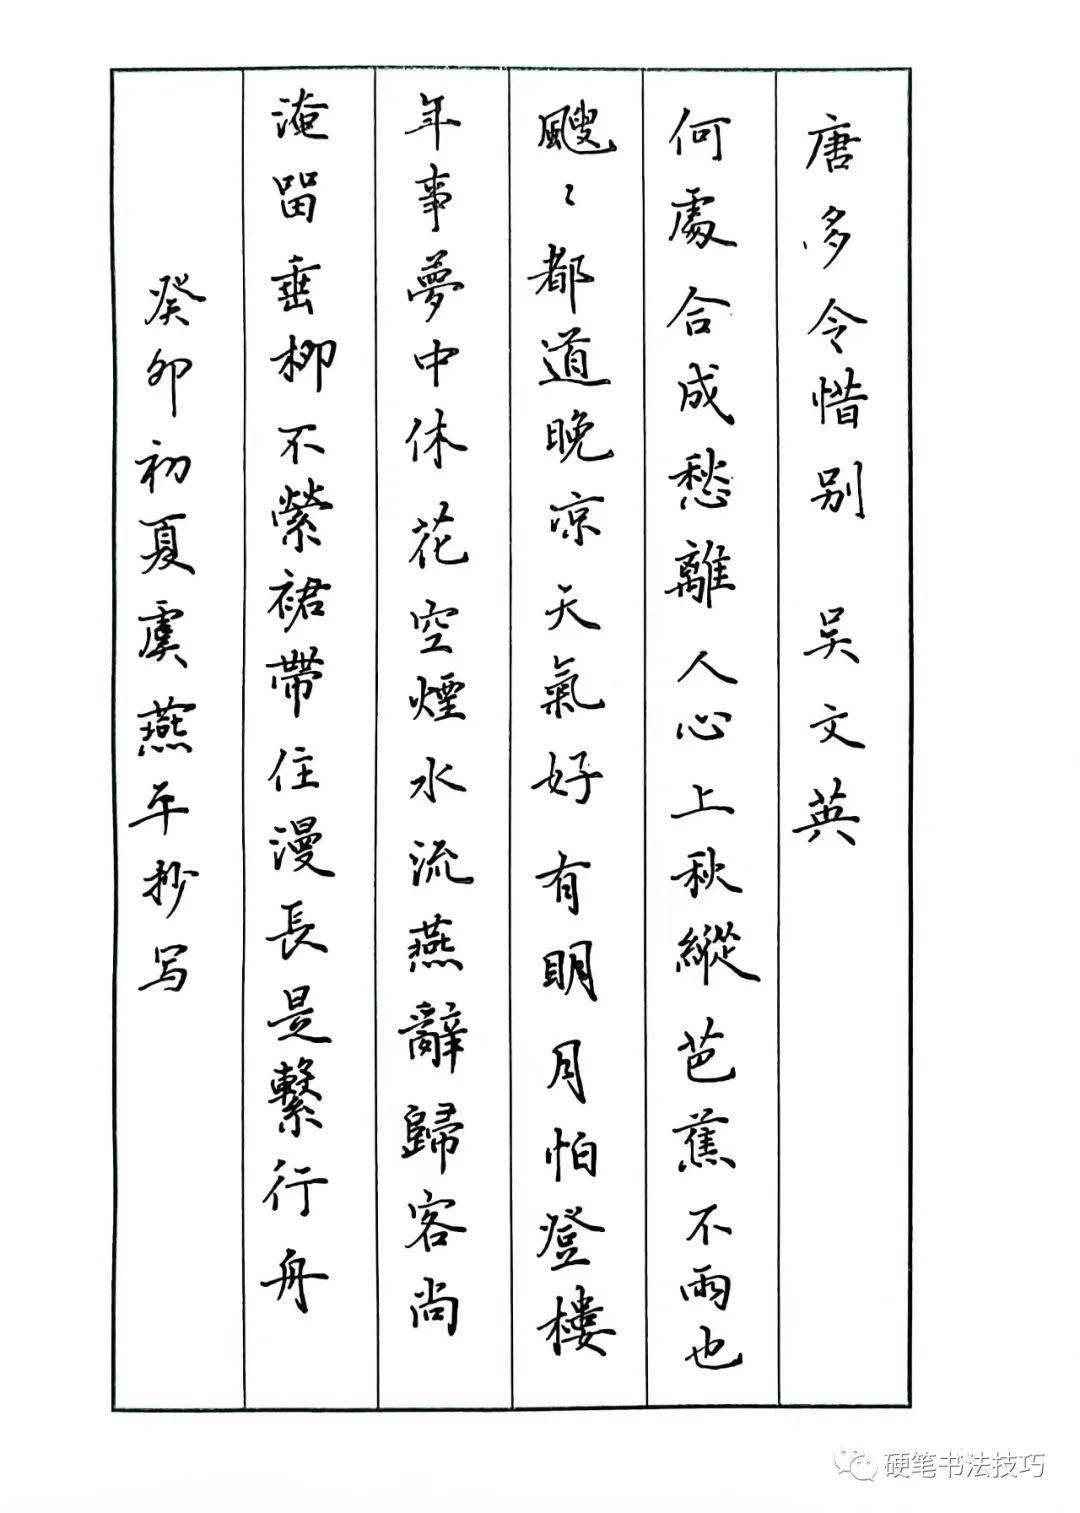 唐多令惜别　吴文英
何處合成愁離人心上秋縱芭蕉不雨也
颼〻都道晚涼天氣好有明月怕登樓
年事夢中休花空煙水流燕辭歸客尚
淹留垂柳不縈裙帶住漫長是繫行舟
癸卯初夏虞燕平抄写
硬笔书法技巧